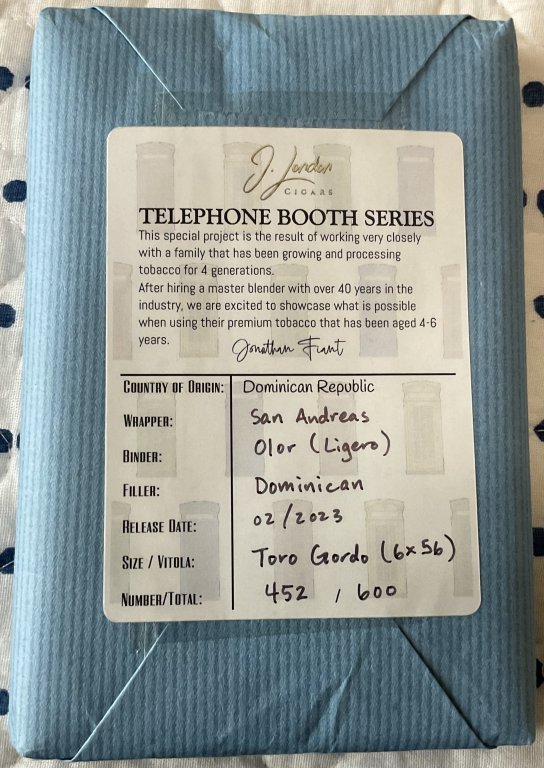 J. London
CIGARS
TELEPHONE BOOTH SERIES
This special project is the result of working very closely
with a family that has been growing and processing
tobacco for 4 generations.
After hiring a master blender with over 40 years in the
industry, we are excited to showcase what is possible
when using their premium tobacco that has been aged 4-6
years.
Jonathan Fiant
COUNTRY OF ORIGIN: Dominican Republic
WRAPPER: San Andreas
BINDER: Olor (Ligero)
FILLER: Dominican
RELEASE DATE: 02/2023
SIZE / VITOLA: Toro Gordo (6x56)
NUMBER/TOTAL: 452 / 600